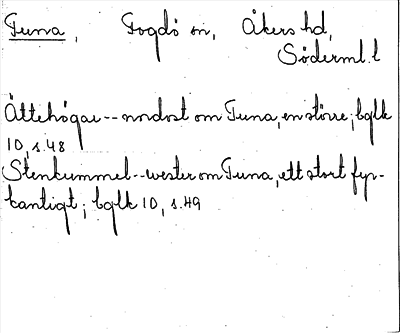 Tuna, Fogdö sn, Åkers hd,
Söderml. l
Ättehögar -- nordost om Tuna, en större; bglk
10, s. 48
Stenkummel -- wester om Tuna, ett stort fyr-
kantigt; bglk 10, s. 49